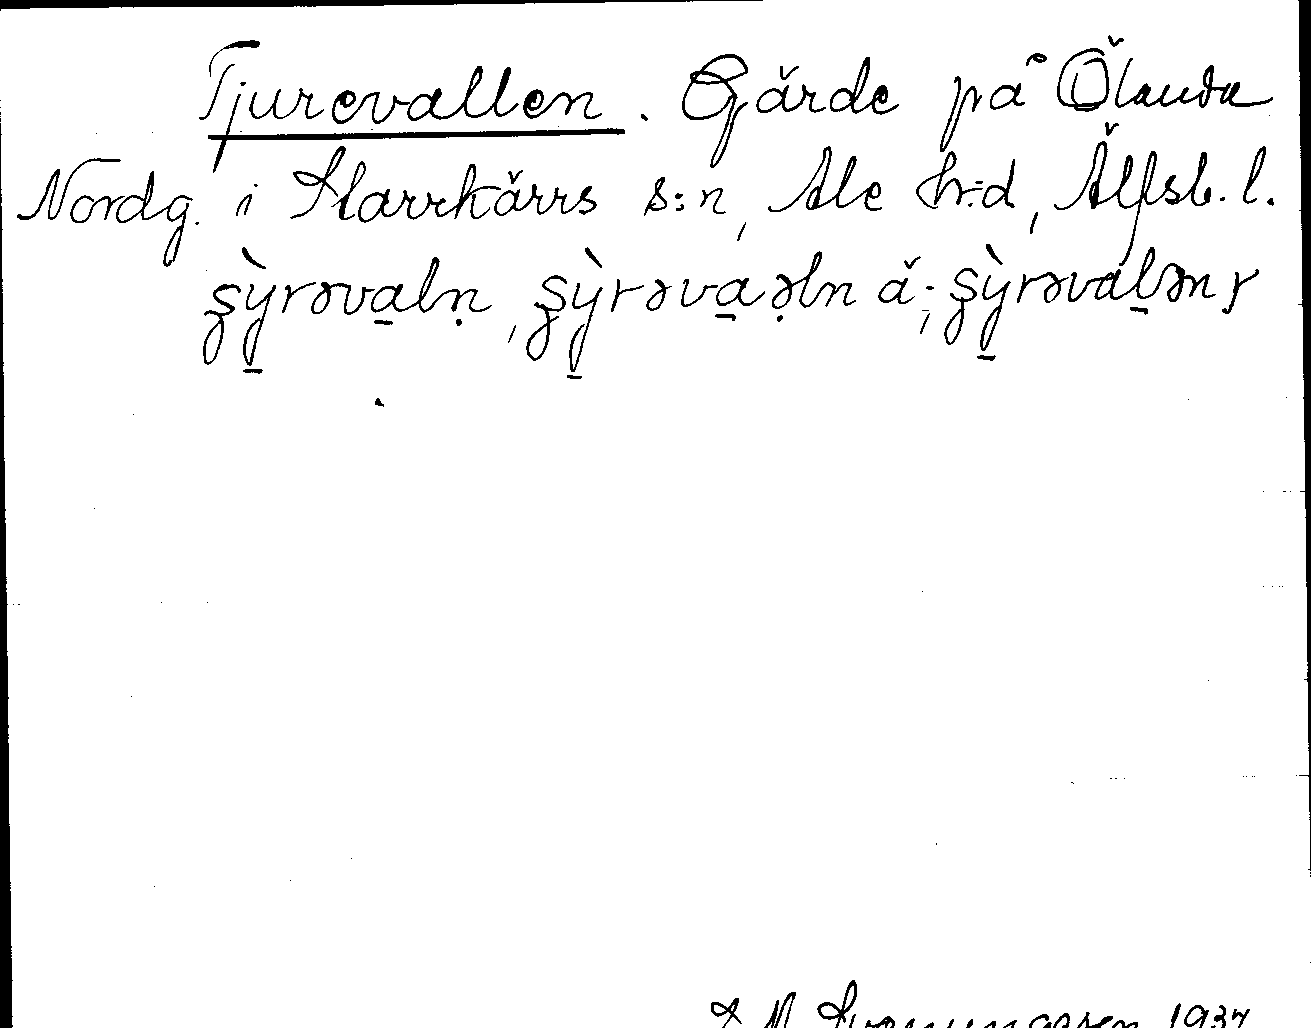 Tjurevallen. Gärde på Ölanda
Nordg. i Starrkärrs s:n, Ale hr:d, Älfsb. l.
ʂỳrəvaln̩, ʂỳrəvaəln ä; ʂỳrəvalən
1937